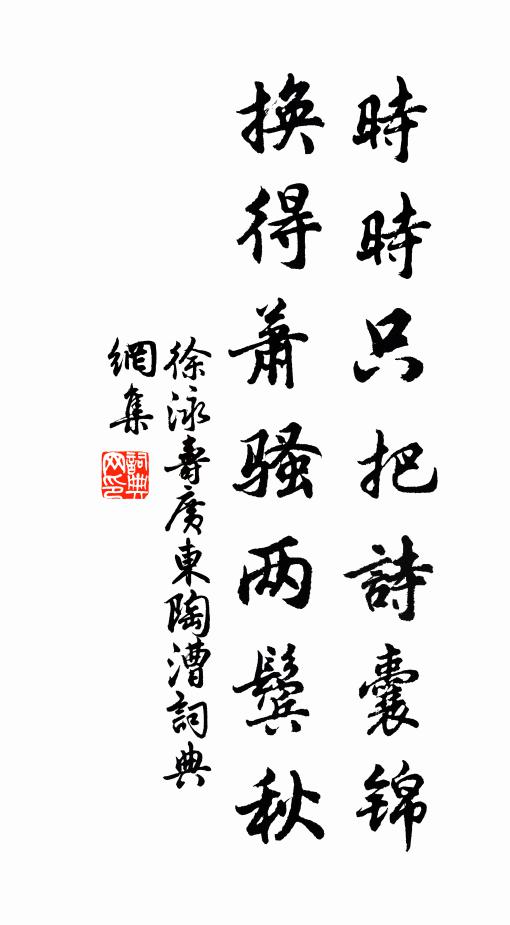 時時只把詩囊锦
換得蕭骚两鬓秋
徐泳壽廣東陶漕詞典
網集
詞典網印